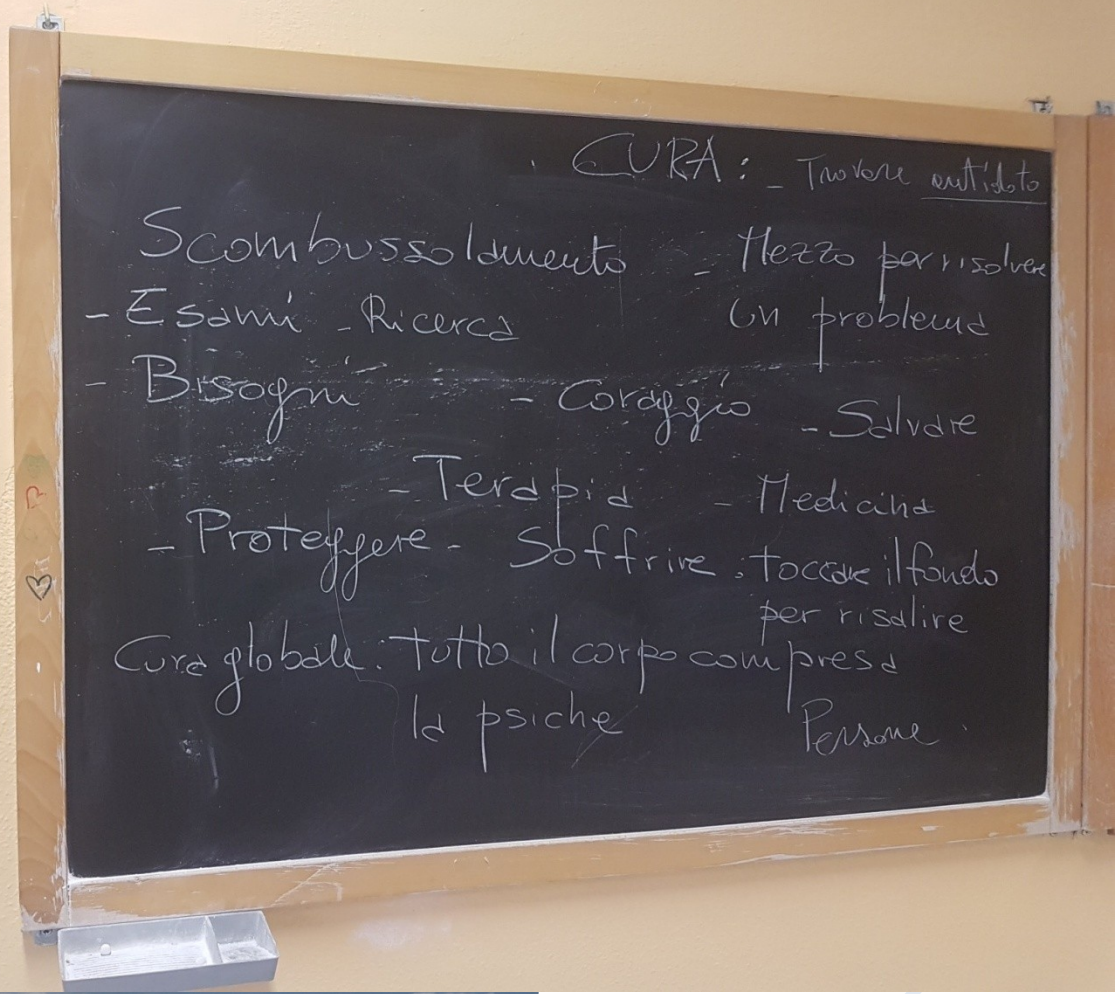 CURA: - Trovare antidoto
Scombussolamento - Mezzo per risolvere
- Esami - Ricerca un problema
- Bisogni - Coraggio - Salvare
- Terapia - Medicina
- Proteggere - Soffrire. toccare il fondo
per risalire
Cura globale: tutto il corpo compresa
la psiche Persone.